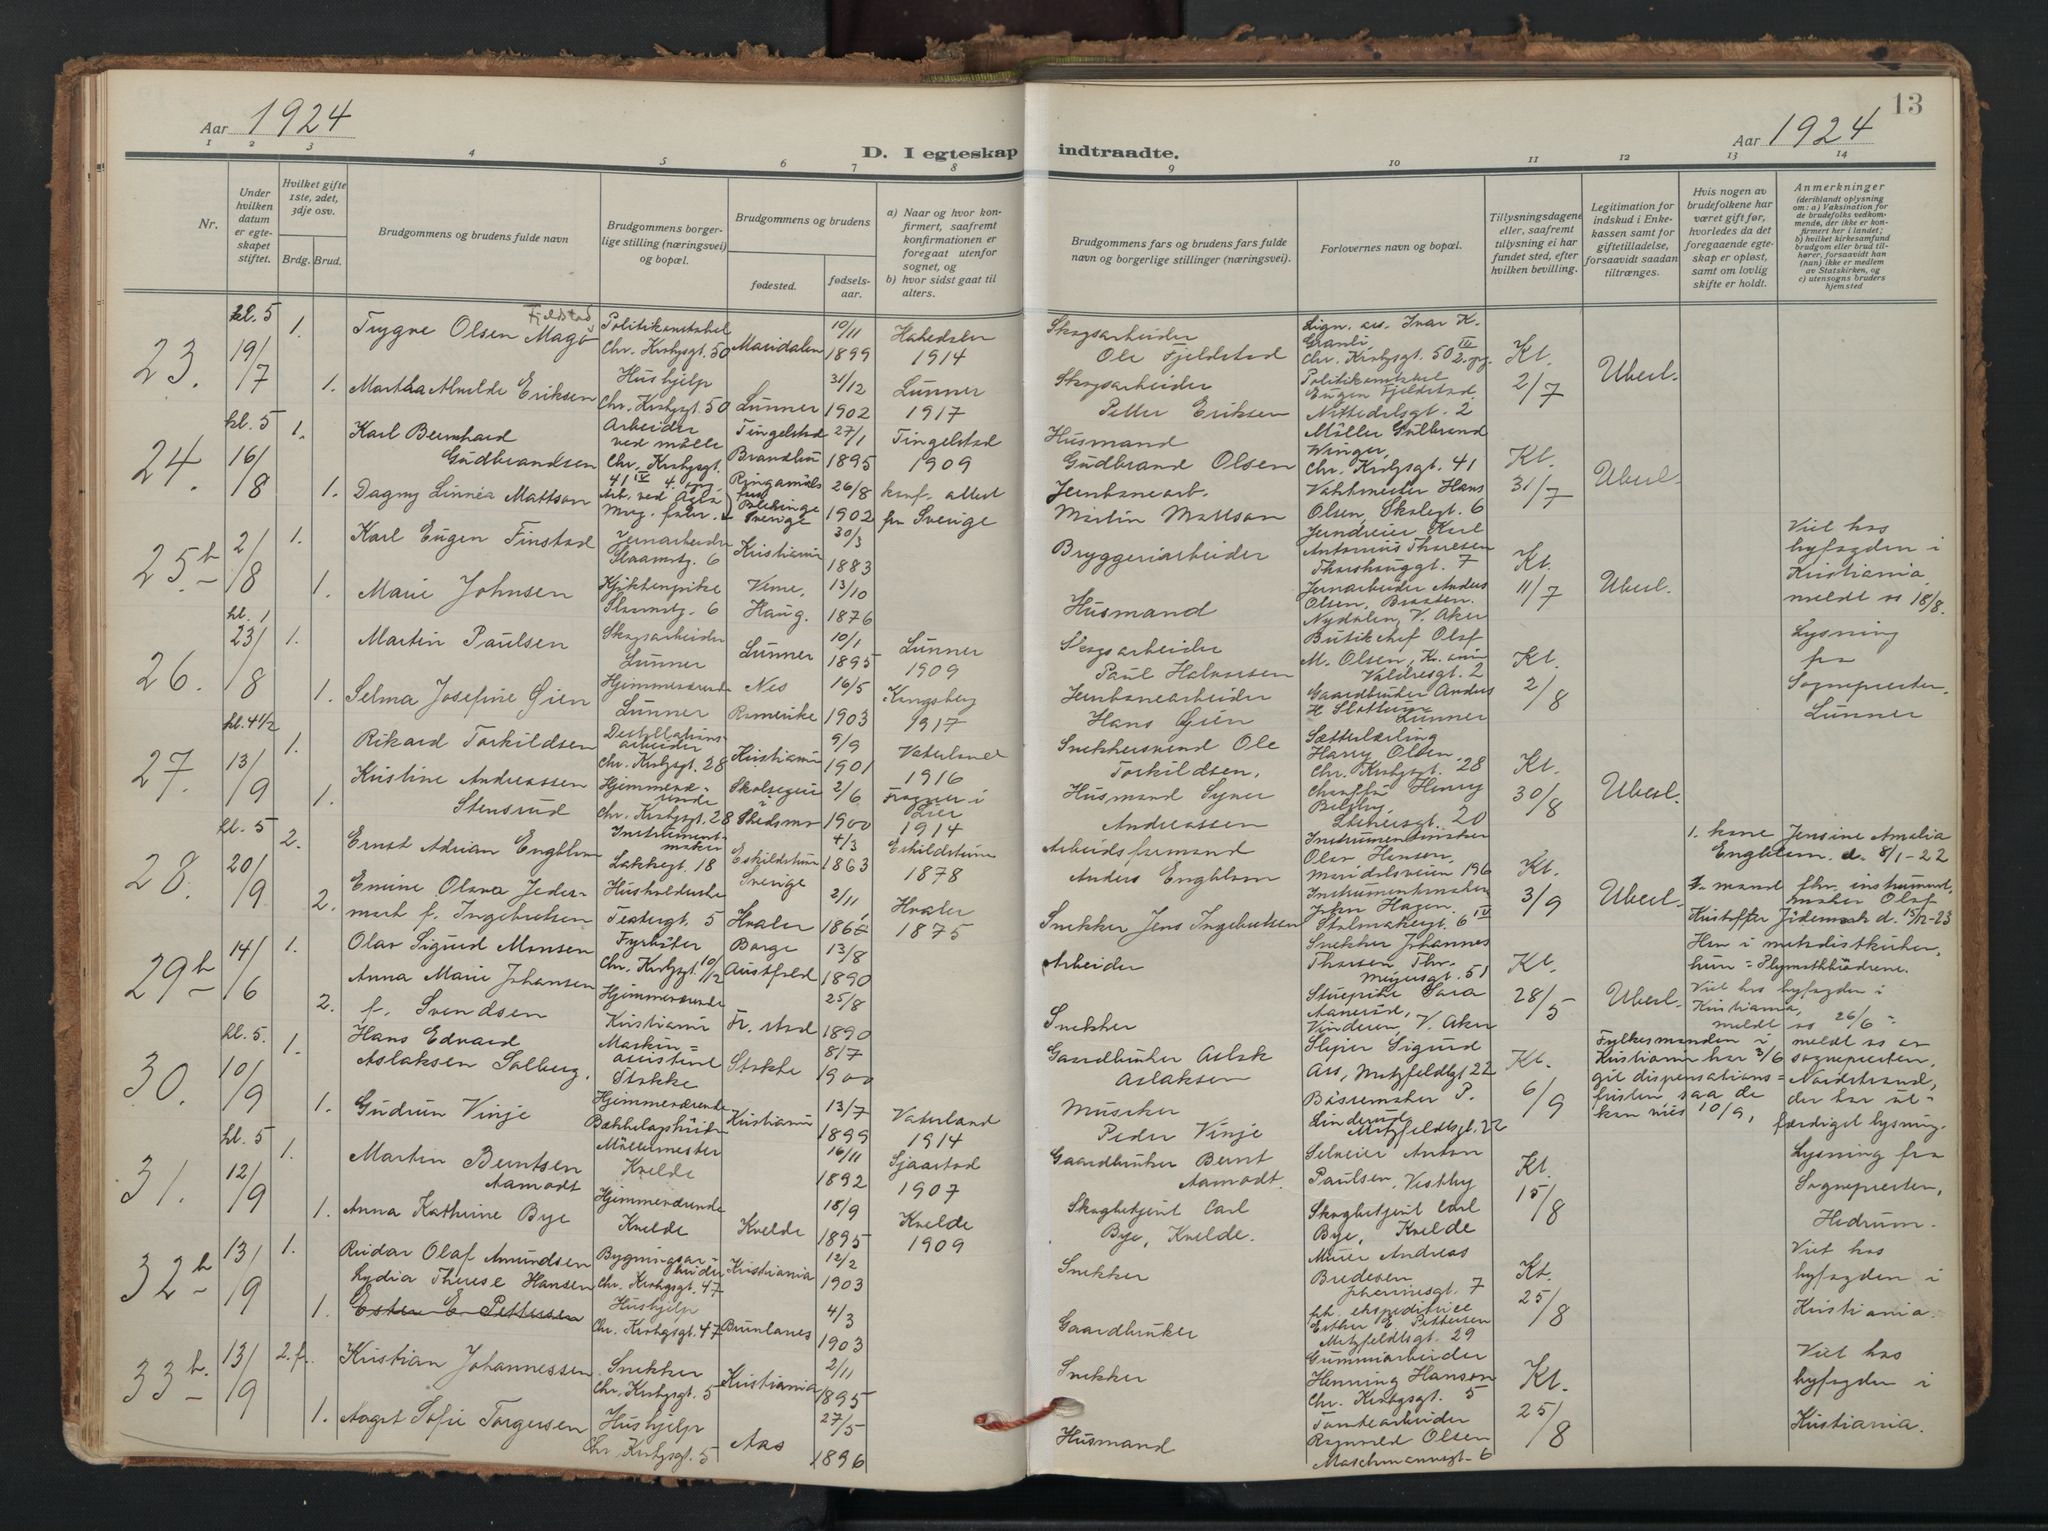 13
Aar 1924
Aar 1924
D. I egteskap indtraadte.
1 2 3 4 5 6 7 8 9 10 11 12 13 14
Nr.
Under hvilken datum er egteskapet stiftet.
Hvilket gifte 1ste, 2det, 3dje osv.
Brdg. Brud.
Brudgommens og brudens fulde navn
Brudgommens borgerlige stilling (næringsvei) og bopæl.
Brudgommens og brudens
fødested.
fødselsaar.
a) Naar og hvor konfirmert, saafremt konfirmationen er foregaat utenfor sognet, og
b) hvor sidst gaat til alters.
Brudgommens fars og brudens fars fulde navn og borgerlige stillinger (næringsvei).
Forlovernes navn og bopæl.
Tillysningsdagene eller, saafremt tillysning ei har fundet sted, efter hvilken bevilling.
Legitimation for indskud i Enkekassen samt for giftetilladelse, forsaavidt saadan tiltrænges.
Hvis nogen av brudefolkene har været gift før, hvorledes da det foregaaende egteskap er opløst, samt om lovlig skifte er holdt.
Anmerkninger
(deriblandt oplysning om: a) Vaksination for de brudefolks vedkommende, der ikke er konfirmert her i landet;
b) hvilket kirkesamfund brudgom eller brud tilhører, forsaavidt han (hun) ikke er medlem av Statskirken, og
c) utensogns bruders hjemsted
23. kl. 5 19/7
1. Trygve Olsen Fjeldstad
Politikonstabel Chr. Krohgsgt. 50
Maridalen 10/11 1899
1914
Skogsarbeider Ole Fjeldstad
Chr. Krohgsgt. 50
Kl. 2/7
Uberl.
1. Martha Alvilde Eriksen
Hushjelp Chr. Krohgsgt. 50
Lunner 31/12 1902
Lunner 1917
Skogsarbeider Petter Eriksen
Politikonstabel Eugen Fjeldstad, Nittedalsgt. 2
24. kl. 5 16/8
1. Karl Bernhard Gudbrandsen
Arbeider ved mølle Chr. Krohgsgt. 41 IV
Tingelstad Brandbu 27/1 1895
Tingelstad 1909
Husmand Gudbrand Olsen
Møller Gulbrand Winger, Chr. Krohgsgt. 41
Kl. 31/7
Uberl.
1. Dagny Linnea Mattson
Sverige 26/8 1902
fra Sverige
Jernbanearb. Martin Mattson
Vaktmester Hans Olsen, Skolegt. 6
25 b 2/8
1. Karl Eugen Finstad
Jernarbeider 6
Kristiania 30/3 1883
Bryggeriarbeider
Karl Antonius Thoresen 7
Kl. 11/7
Uberl.
Viet hos byfogden i Kristiania meldt os 18/8.
1. Marie Johnsen
6
Haug. 13/10 1876
Husmand
Jernarbeider Anders Olsen, Nydalen, V. Aker
26. kl. 1 23/8
1. Martin Paulsen
Skogsarbeider Lunner
Lunner 10/1 1895
Lunner 1909
Skogsarbeider Paul Halvorsen
Butikchef Olaf M. Olsen, Valdresgt. 2
Kl. 2/8
Lysning fra Sognepresten, Lunner
1. Selma Josefine Øien
Hjemmeværende Lunner
Nes Romerike 16/5 1903
Kongsberg 1917
Jernbanearbeider Hans Øien
Gaardbruker Anders H. Slottum Lunner
27. kl. 4 1/2 13/9
1. Rikard Torkildsen
Destillationsarbeider Chr. Krohgsgt. 28
Kristiania 9/9 1901
Vaterland 1916
Snekkersvend Ole Torkildsen.
Sætterlærling Harry Olsen Chr. Krohgsgt. 28
Kl. 30/8
Uberl.
1. Kristine Andreassen Stensrud
Hjemmeværende Chr. Krohgsgt. 28
Skedsmo 2/6 1900
Frogner i Lier 1914
Husmand Syver Andreassen
Chauffør Henry 20
28. kl. 5 20/9
2. Ernst Adrian Engblom
Instrumentmaker Lakkegt 18
Eskilstuna Sverige 4/3 1863
Eskilstuna 1878
Arbeidsformand Anders Engblom
Instrumentmaker Olav Hansen, Maridalsveien 196
Kl. 3/9
Uberl.
1. kone Jensine Amalia Engblom d. 8/1-22
2. Emine Olava Jedermark f. Ingebretsen
Husholderske Teatergt. 5
Hvaler 2/11
Hvaler 1875
Snekker Jens Ingebretsen
Instrumentmaker John Hagen,
1. mand fhv. instrumentmaker Olaf Kristoffer d. 15/12-23
29 b 14/6
1. Olav Sigurd Monsen
Fyrbøter Chr. Krohgsgt 10/12
Borge Austfold 13/8 1890
Arbeider
Snekker Johannes Thorsen, Thv. Meyersgt. 51
Kl. 28/5
Uberl.
Han i metodistkirken, hun = Plymothbrødrene.
Viet hos byfogden i Kristiania, meldt os 26/6
2. Anna Marie Johansen f. Svendsen
Hjemmeværende Kristiania
Fr. stad 25/8 1890
Snekker
Vinderen, V. Aker
30. kl. 5. 10/9
1. Hans Edvard Aslaksen Solberg.
Maskinassistent Stokke
Stokke 8/7 1900
Gaardbruker Aslak Aslaksen
Sigurd Aas, Motzfeldtgt 22
Kl. 6/9
Fylkesmanden i Kristiania har 3/6 git dispensationsfristen saa de kan vies 10/9,
meldt os av sognepresten, Nordstrand, der har utfærdiget lysning.
1. Gudrun Vinje
Hjemmeværende
Kristiania 13/7 1899
Vaterland 1914
Musiker Peder Vinje
Bøssemaker P. Linderud Motzfeldtsgt. 22
31. kl. 5 12/9
1. Martin Berntsen Aamodt
Møllemester Kvelde
16/11 1892
Sjaastad 1907
Gaardbruker Bernt Aamodt.
Selveier Anton Paulsen, Vestby
Kl. 15/8
Lysning fra Sognepresten, Hedrum.
1. Anna Kathrine Bye
Hjemmeværende Kvelde
Kvelde 18/9 1895
Kvelde 1909
Skogbetjent Carl Bye, Kvelde.
Skogbetjent Carl Bye, Kvelde
32 b 13/9
1. Reidar Olaf Amundsen
Bygningsarbeider Chr. Krohgsgt. 47
Kristiania 12/2 1903
Snekker
Murer Andreas Bredesen 7
Kl. 25/8
Viet hos byfogden i Kristiania.
Lydia Therese Hansen
1. Ester E. Pettersen
Hushjelp Chr. Krohgsgt. 47
Brunlanes 4/3 1903
Gaardbruker
Esther E. Pettersen Motzfeldtsgt. 29
33 b 13/9
2. f. Kristian Johannessen
Snekker Chr. Krohgsgt. 5
Kristiania 2/11 1895
Snekker
Gummiarbeider Henning Hanson Chr. Krohgsgt. 5
Kl. 25/8
Viet hos byfogden i Kristiania.
1. Aagot Sofie Torgersen
Hushjelp Chr. Krohgsgt. 5
Aas 27/5 1896
Husmand
Tomtearbeider Ragnvald Olsen 6